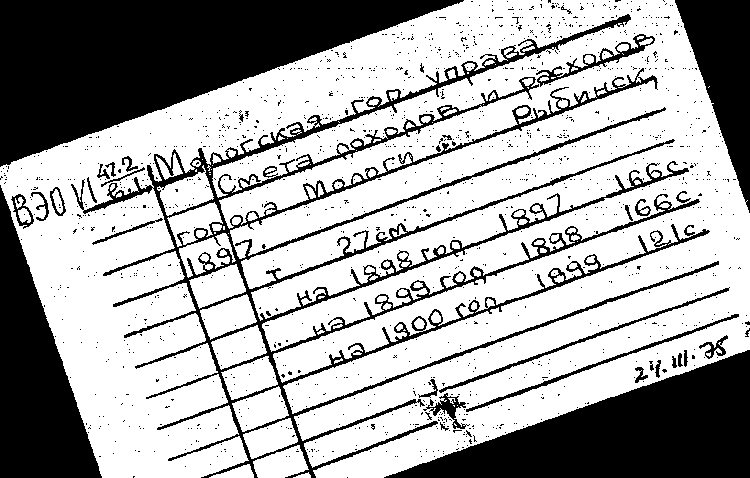 ВЭО VI 47.2
в.1. Мологская гор. управа
Смета доходов и расходов
города Мологи ... Рыбинск,
1897.
т 27 см.
... на 1898 год 1897. 166 с.
... на 1899 год 1898. 166 с.
... на 1900 год 1899 121 с.
24.III.75